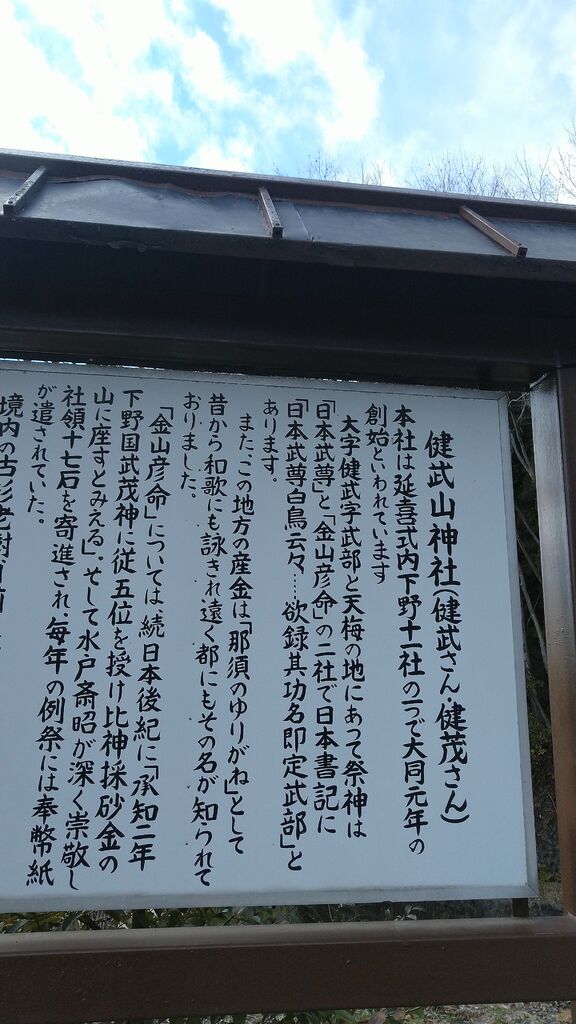 健武山神社(健武さん・健茂さん)
本社は延喜式内下野十一社の一つで大同元年の
創始といわれています
大字健武字武部と天梅の地にあって祭神は
「日本武尊」と「金山彦命」の二社で日本書記に
「日本武尊白鳥云々……欲録其功名即定武部」と
あります。
また、この地方の産金は「那須のゆりがね」として
昔から和歌にも詠され遠く都にもその名が知られて
おりました。
「金山彦命」については、続日本後紀に「承知二年
下野国武茂神に従五位を授け比神採砂金の
山に座すとみえる」。そして水戸斉昭が深く崇敬し
社領十七石を寄進され、毎年の例祭には奉幣紙
が遣されていた。
境内の古杉老樹